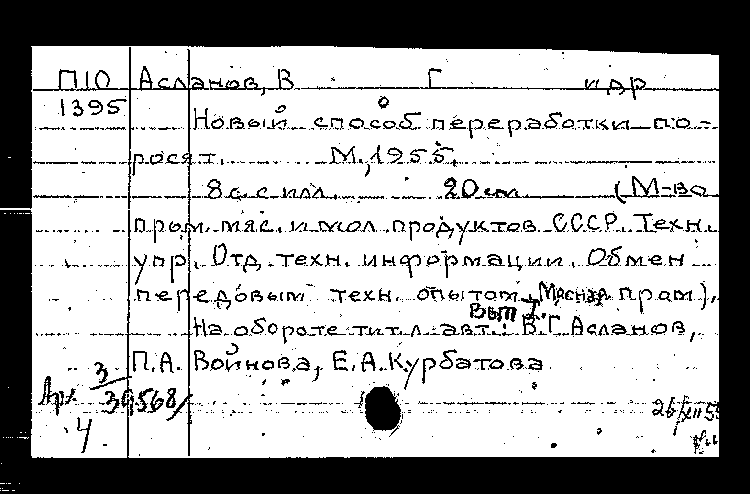 П10 Асланов, В Г и др
1395
Новый способ переработки по-
росят. М., 1955.
8 с. с илл. 20 см. (М-во
пром. мяс. и мол. продуктов СССР. Техн.
упр. Отд. техн. информации. Обмен
передовым техн. опытом. Мясная пром).
Вып 1.
На обороте тит. л. авт.: В.Г. Асланов,
П.А. Войнова, Е.А. Курбатова
3
Арх. 39568/
4
26/XII 55